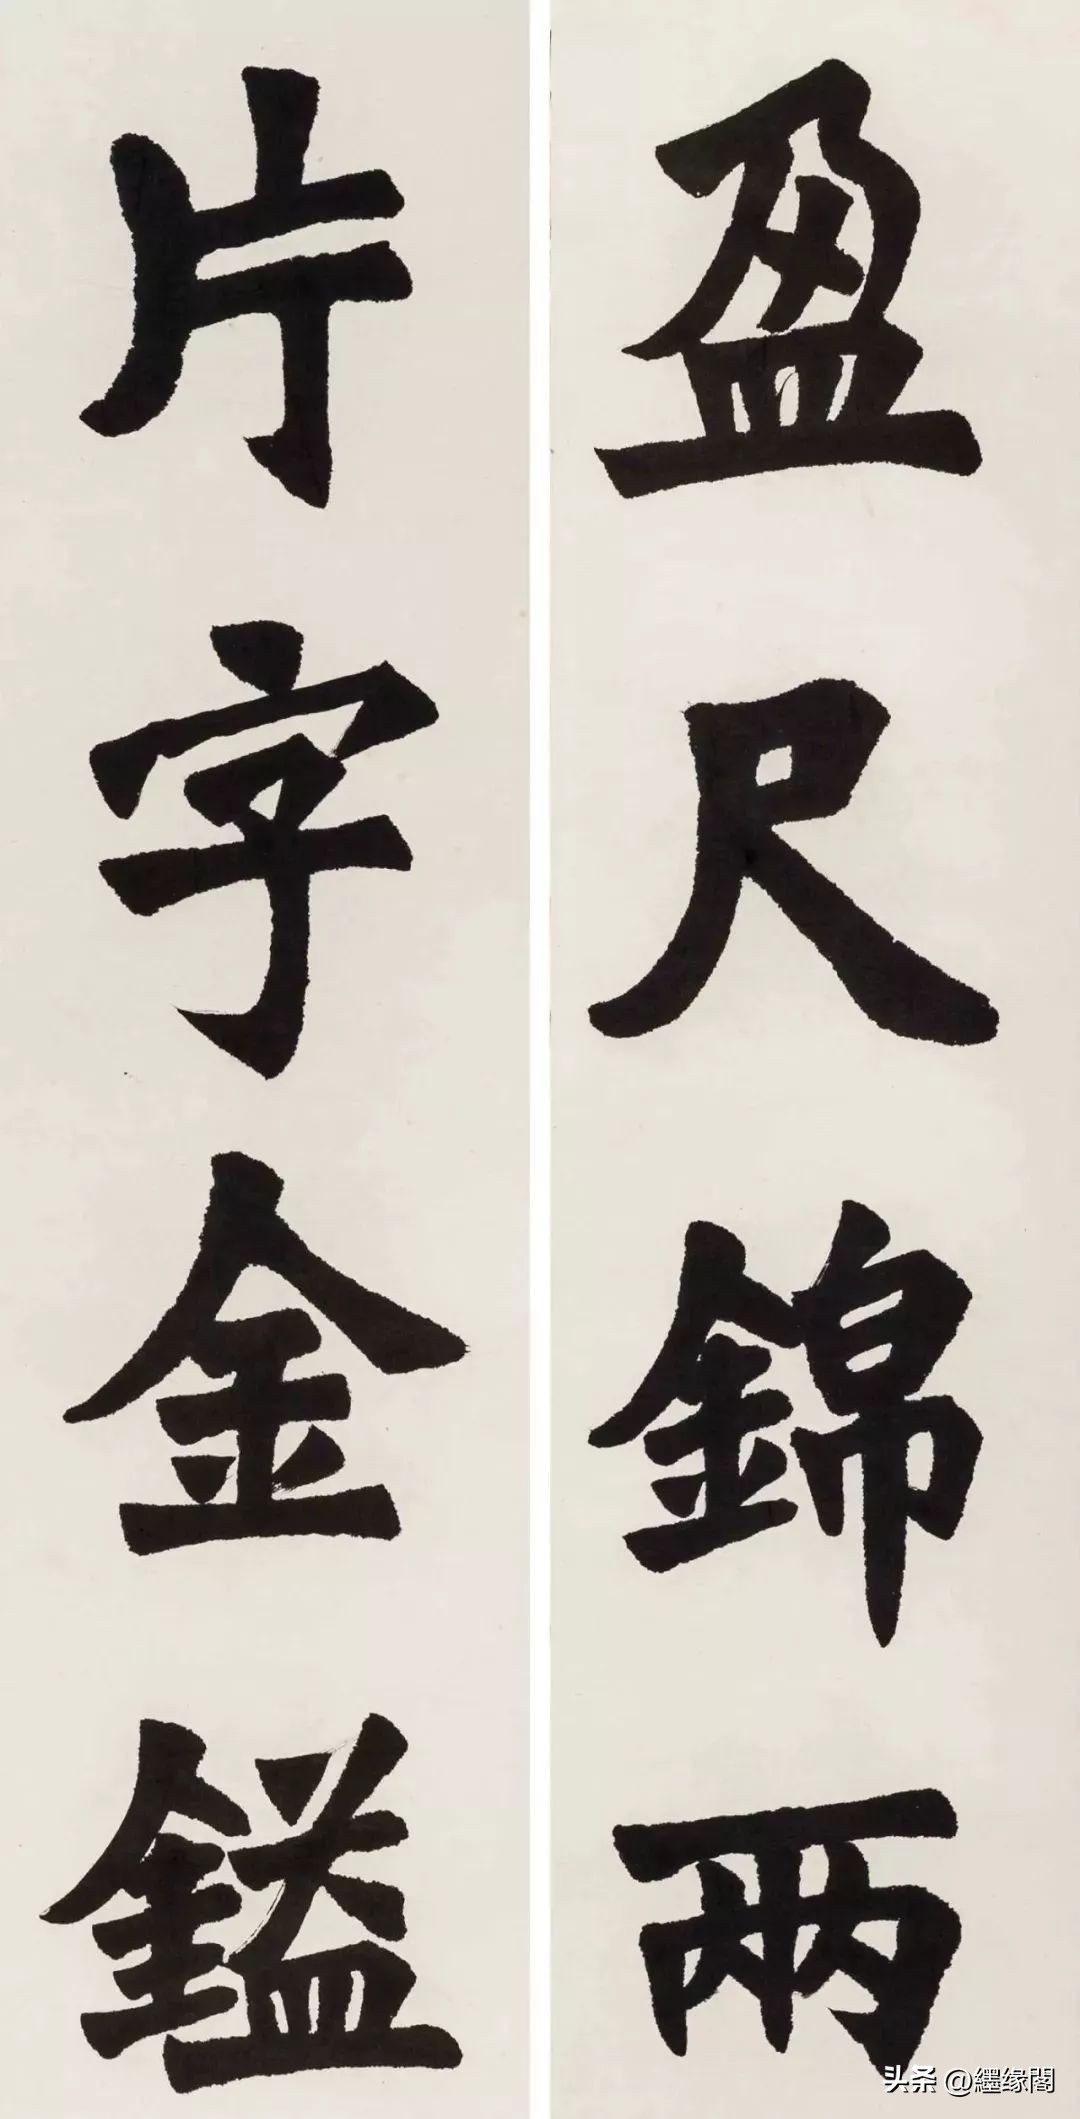 盈尺錦兩
片字金鎰
头条 @纆缘閣